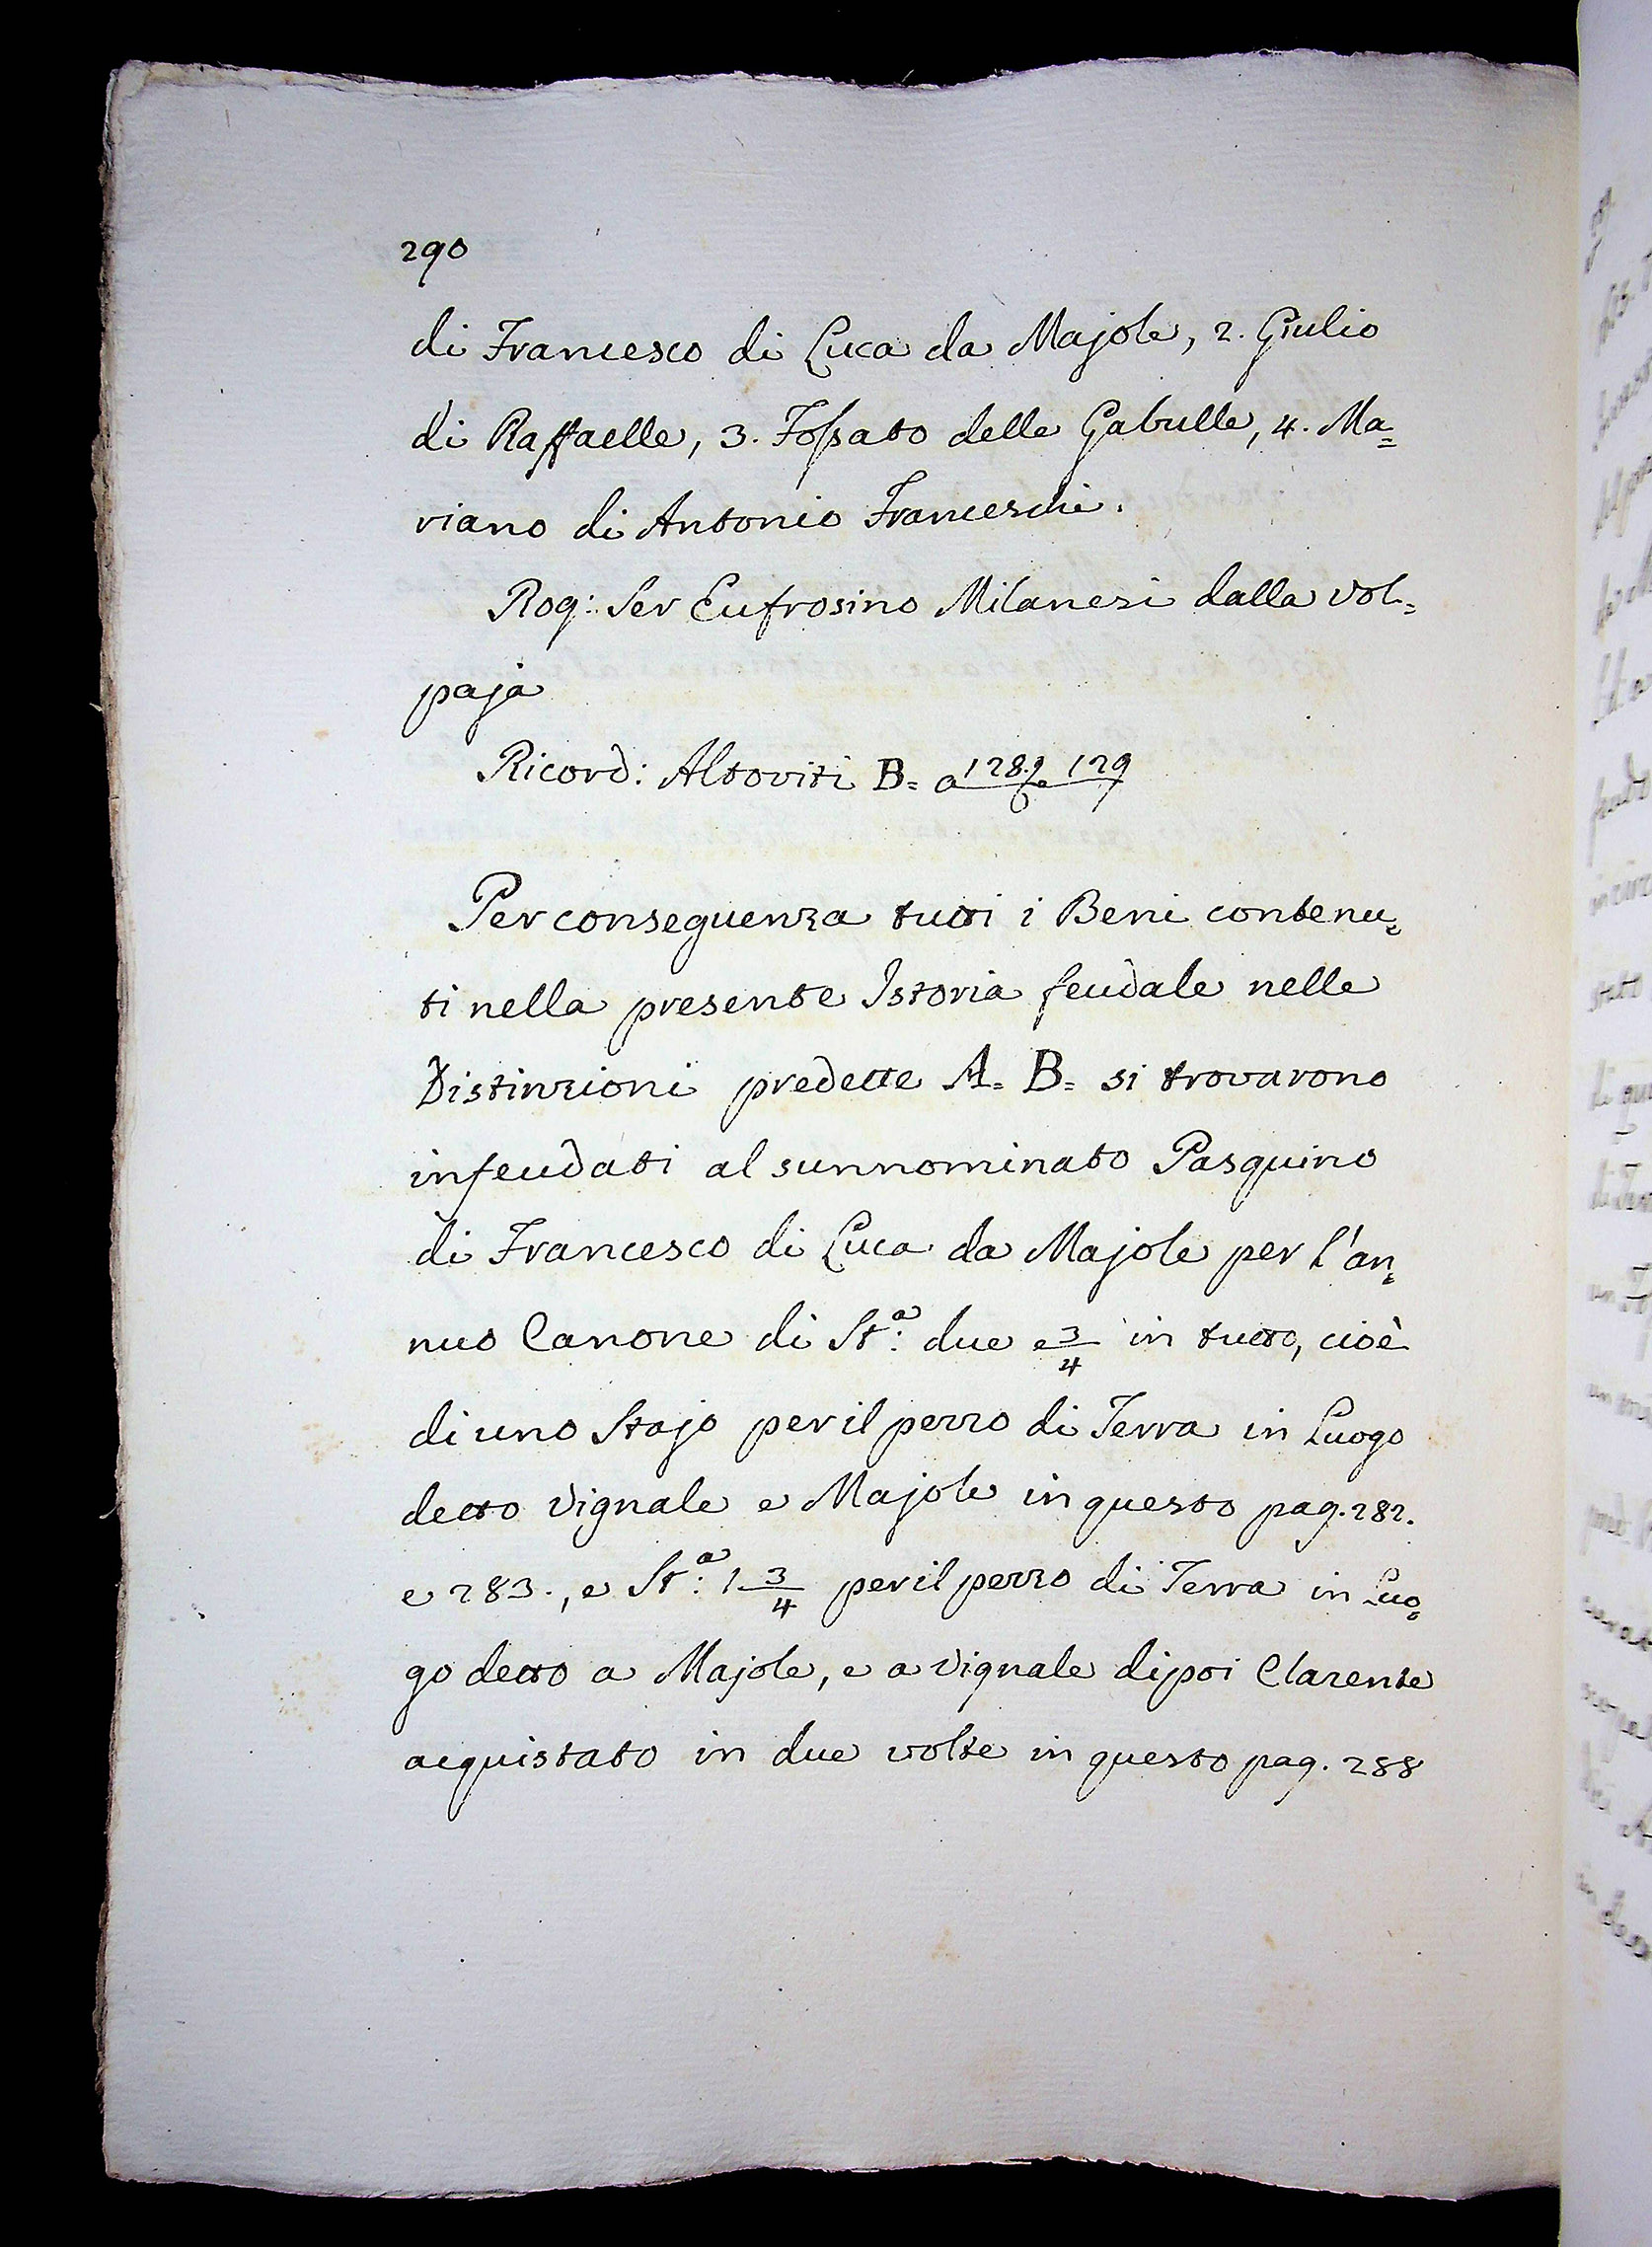 290
di Francesco di Luca da Majole, 2. Giulio
di Raffaelle, 3. Fossato delle Gabulle, 4. Ma=
riano di Antonio Franceschi.
Rog: Ser Eufrosino Milanesi dalla vol=
paja
Ricord: Altoviti B= a 128. e 129
Per conseguenza tutti i Beni contenu=
ti nella presente Istoria feudale nelle
Distinzioni predette A= B= si trovarono
infeudati al sunnominato Pasquino
di Francesco di Luca da Majole per l'an=
nuo Canone di St:ª due e 3/4 in tutto, cioè
di uno Stajo per il pezzo di Terra in Luogo
detto vignale e Majole in questo pag. 282.
e 283., e St:ª 1 3/4 per il pezzo di Terra in Luo=
go detto a Majole, e a vignale dipoi Clarente
acquistato in due volte in questo pag. 288